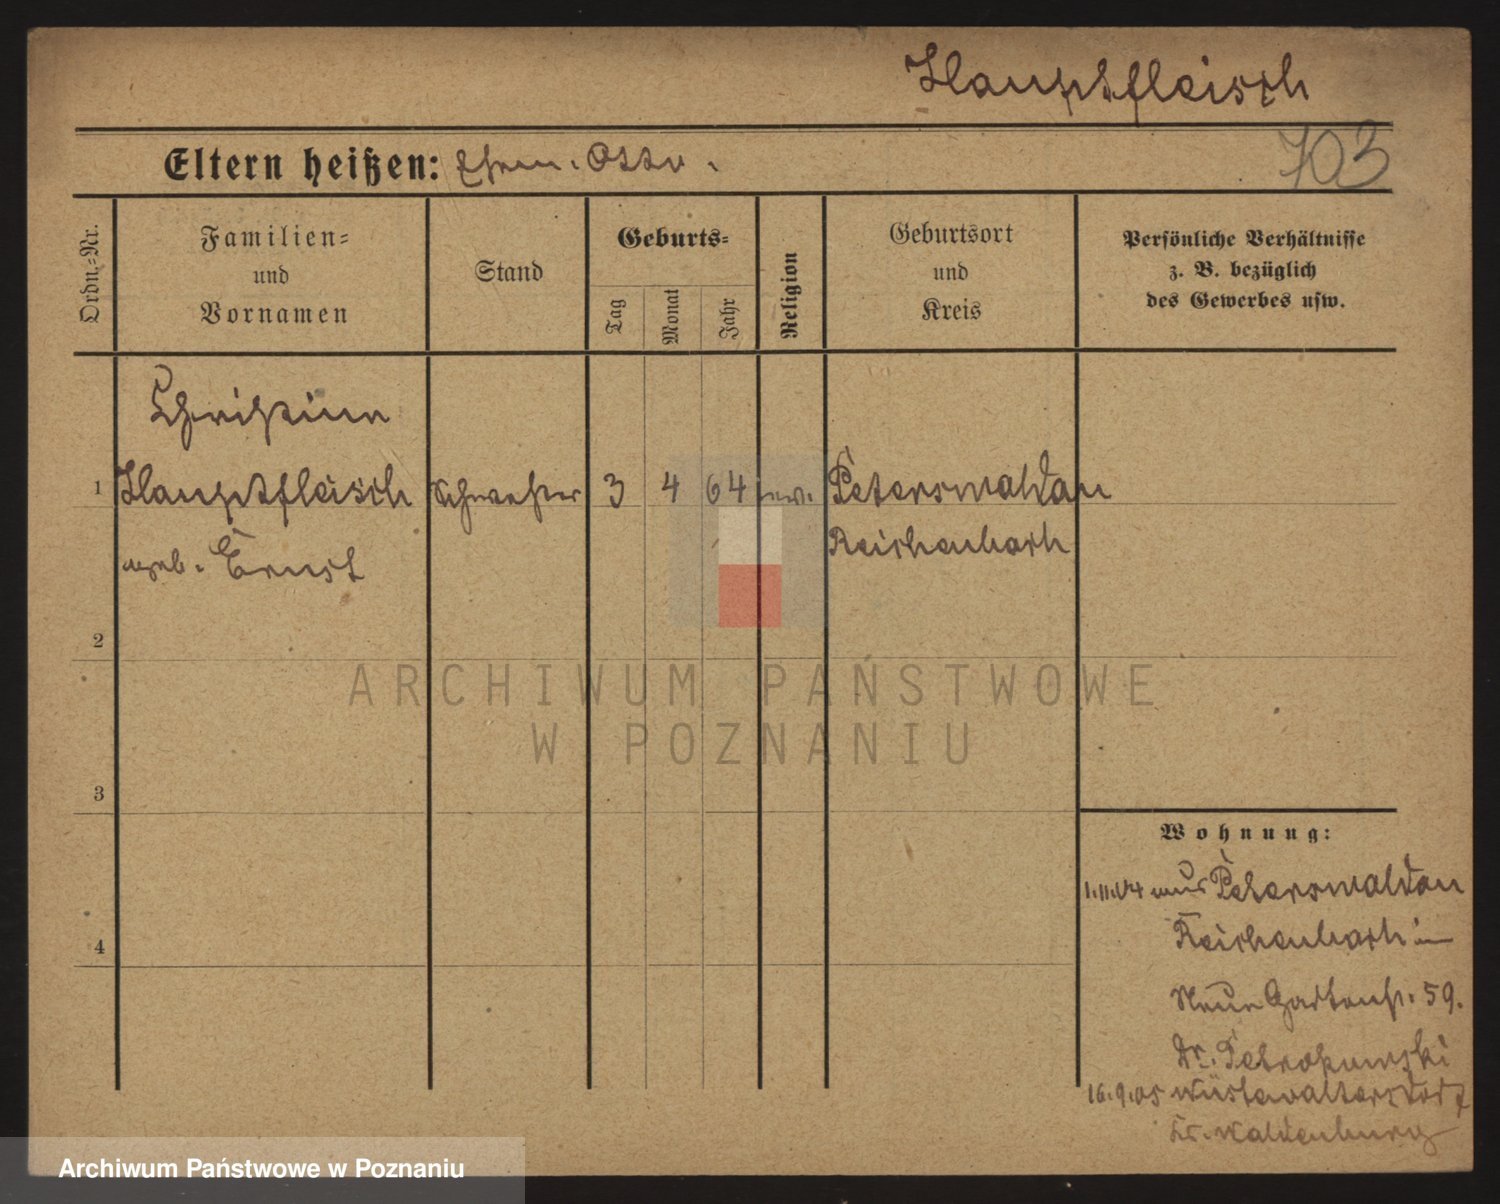 Hauptfleisch
703
Eltern heißen: Ehem. Otto.
Ordn.-Nr.
Familien-
und
Vornamen
Stand
Geburts-
Tag
Monat
Jahr
Religion
Geburtsort
und
Kreis
Persönliche Verhältnisse
z. B. bezüglich
des Gewerbes usw.
Christine
1 Hauptfleisch Schwester 3 4 64 ev. Peterswaldau
Reichenbach
geb. Ernst
2
3
4
Wohnung:
1.11.04 aus Peterswaldau
Reichenbach in
Neue Gartenstr. 59.
Dr.
16.9.05 Wüstewaltersdorf
Kr. Waldenburg
ARCHIWUM PAŃSTWOWE
W POZNANIU
Archiwum Państwowe w Poznaniu